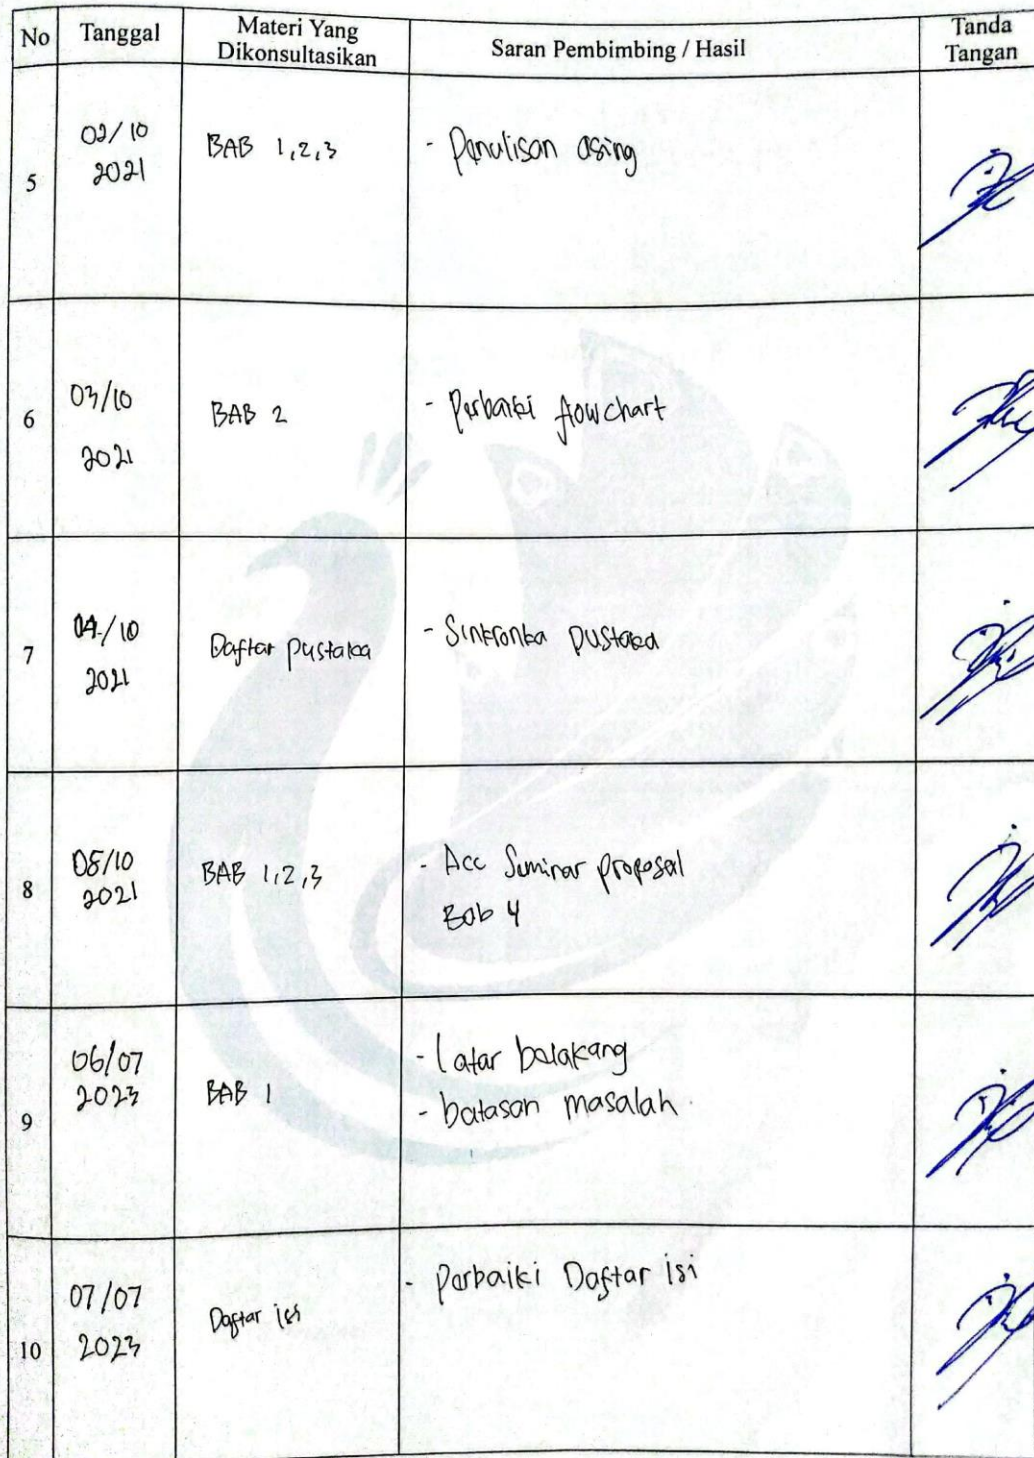 No Tanggal Materi Yang Dikonsultasikan Saran Pembimbing / Hasil Tanda Tangan
5 02/10 2021 BAB 1,2,3 - Penulisan asing
6 03/10 2021 BAB 2 - Perbaiki flowchart
7 04/10 2021 Daftar pustaka - Sinkronka pustaka
8 05/10 2021 BAB 1,2,3 - Acc Seminar proposal
Bab 4
9 06/07 2023 BAB 1 - latar belakang
- batasan masalah
10 07/07 2023 Daftar isi - Perbaiki Daftar isi